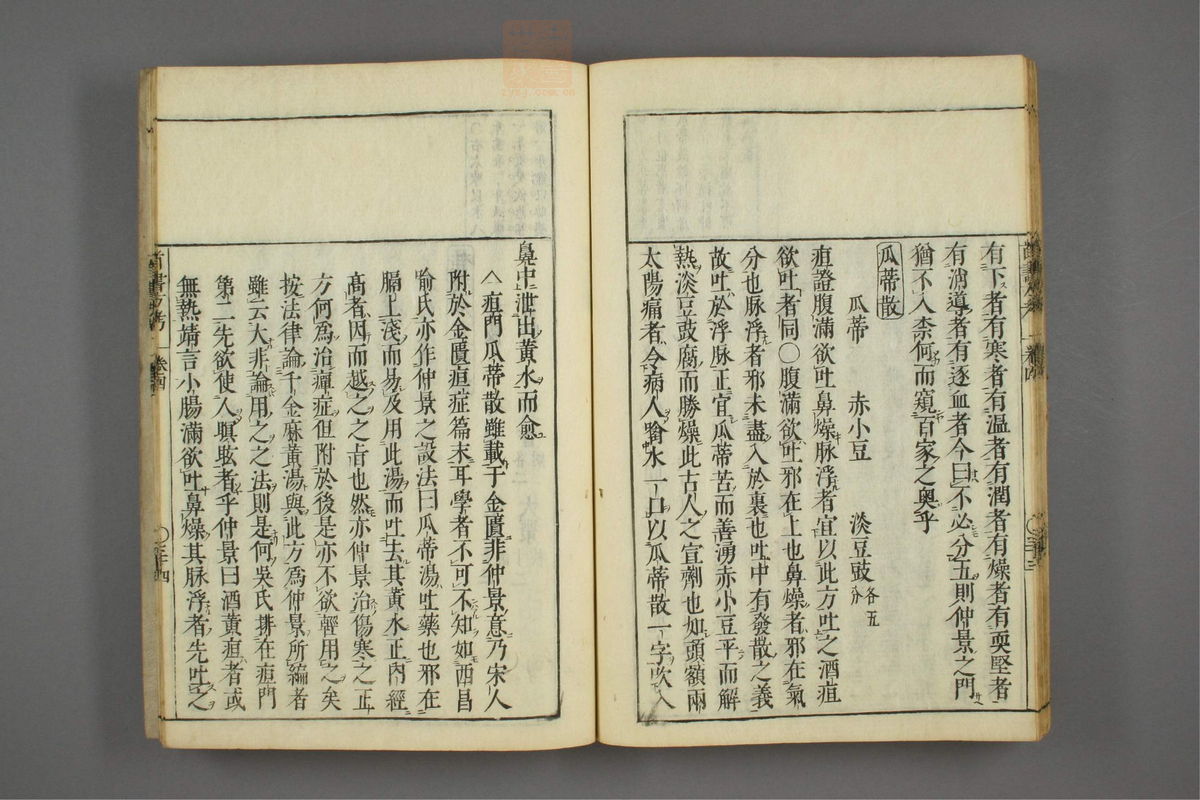 有下者有寒者有溫者有潤者有燥者有耎堅者
有消導者有逐血者今曰不必分五則仲景之門
猶不入柰何而窺百家之奧乎
瓜蒂散
瓜蒂 赤小豆 淡豆豉各五分
疸證腹滿欲吐鼻燥脉浮者宜以此方吐之酒疸
欲吐者同〇腹滿欲吐邪在上也鼻燥者邪在氣
分也脉浮者邪未盡入於裏也吐中有發散之義
故吐於浮脉正宜瓜蒂苦而善湧赤小豆平而解
熱淡豆豉腐而勝燥此古人之宣劑也如頭額兩
太陽痛者令病人噙水一口以瓜蒂散一字吹入
鼻中泄出黃水而愈
疸門瓜蒂散雖載于金匱非仲景意乃宋人
附於金匱疸症篇末耳學者不可不知如西昌
喻氏亦作仲景之設法曰瓜蒂湯吐藥也邪在
膈上淺而易及用此湯而吐去其黃水正內經
髙者因而越之之㫖也然亦仲景治傷寒之正
方何為治癉症但附於後是亦不欲輕用之矣
按法律論千金麻黃湯與此方為仲景所編者
雖云大非論用之之法則是何吳氏排在疸門
第二先欲使人瞑眩者乎仲景曰酒黃疸者或
無熱靖言小腸滿欲吐鼻燥其脉浮者先吐之